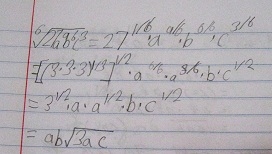 ⁶√27a⁹b⁶c³ = 27^1/6 · a^9/6 · b^6/6 · c^3/6
= [(3·3·3)^1/3]^1/2 · a^6/6 · a^3/6 · b · c^1/2
= 3^1/2 · a · a^1/2 · b · c^1/2
= ab√3ac